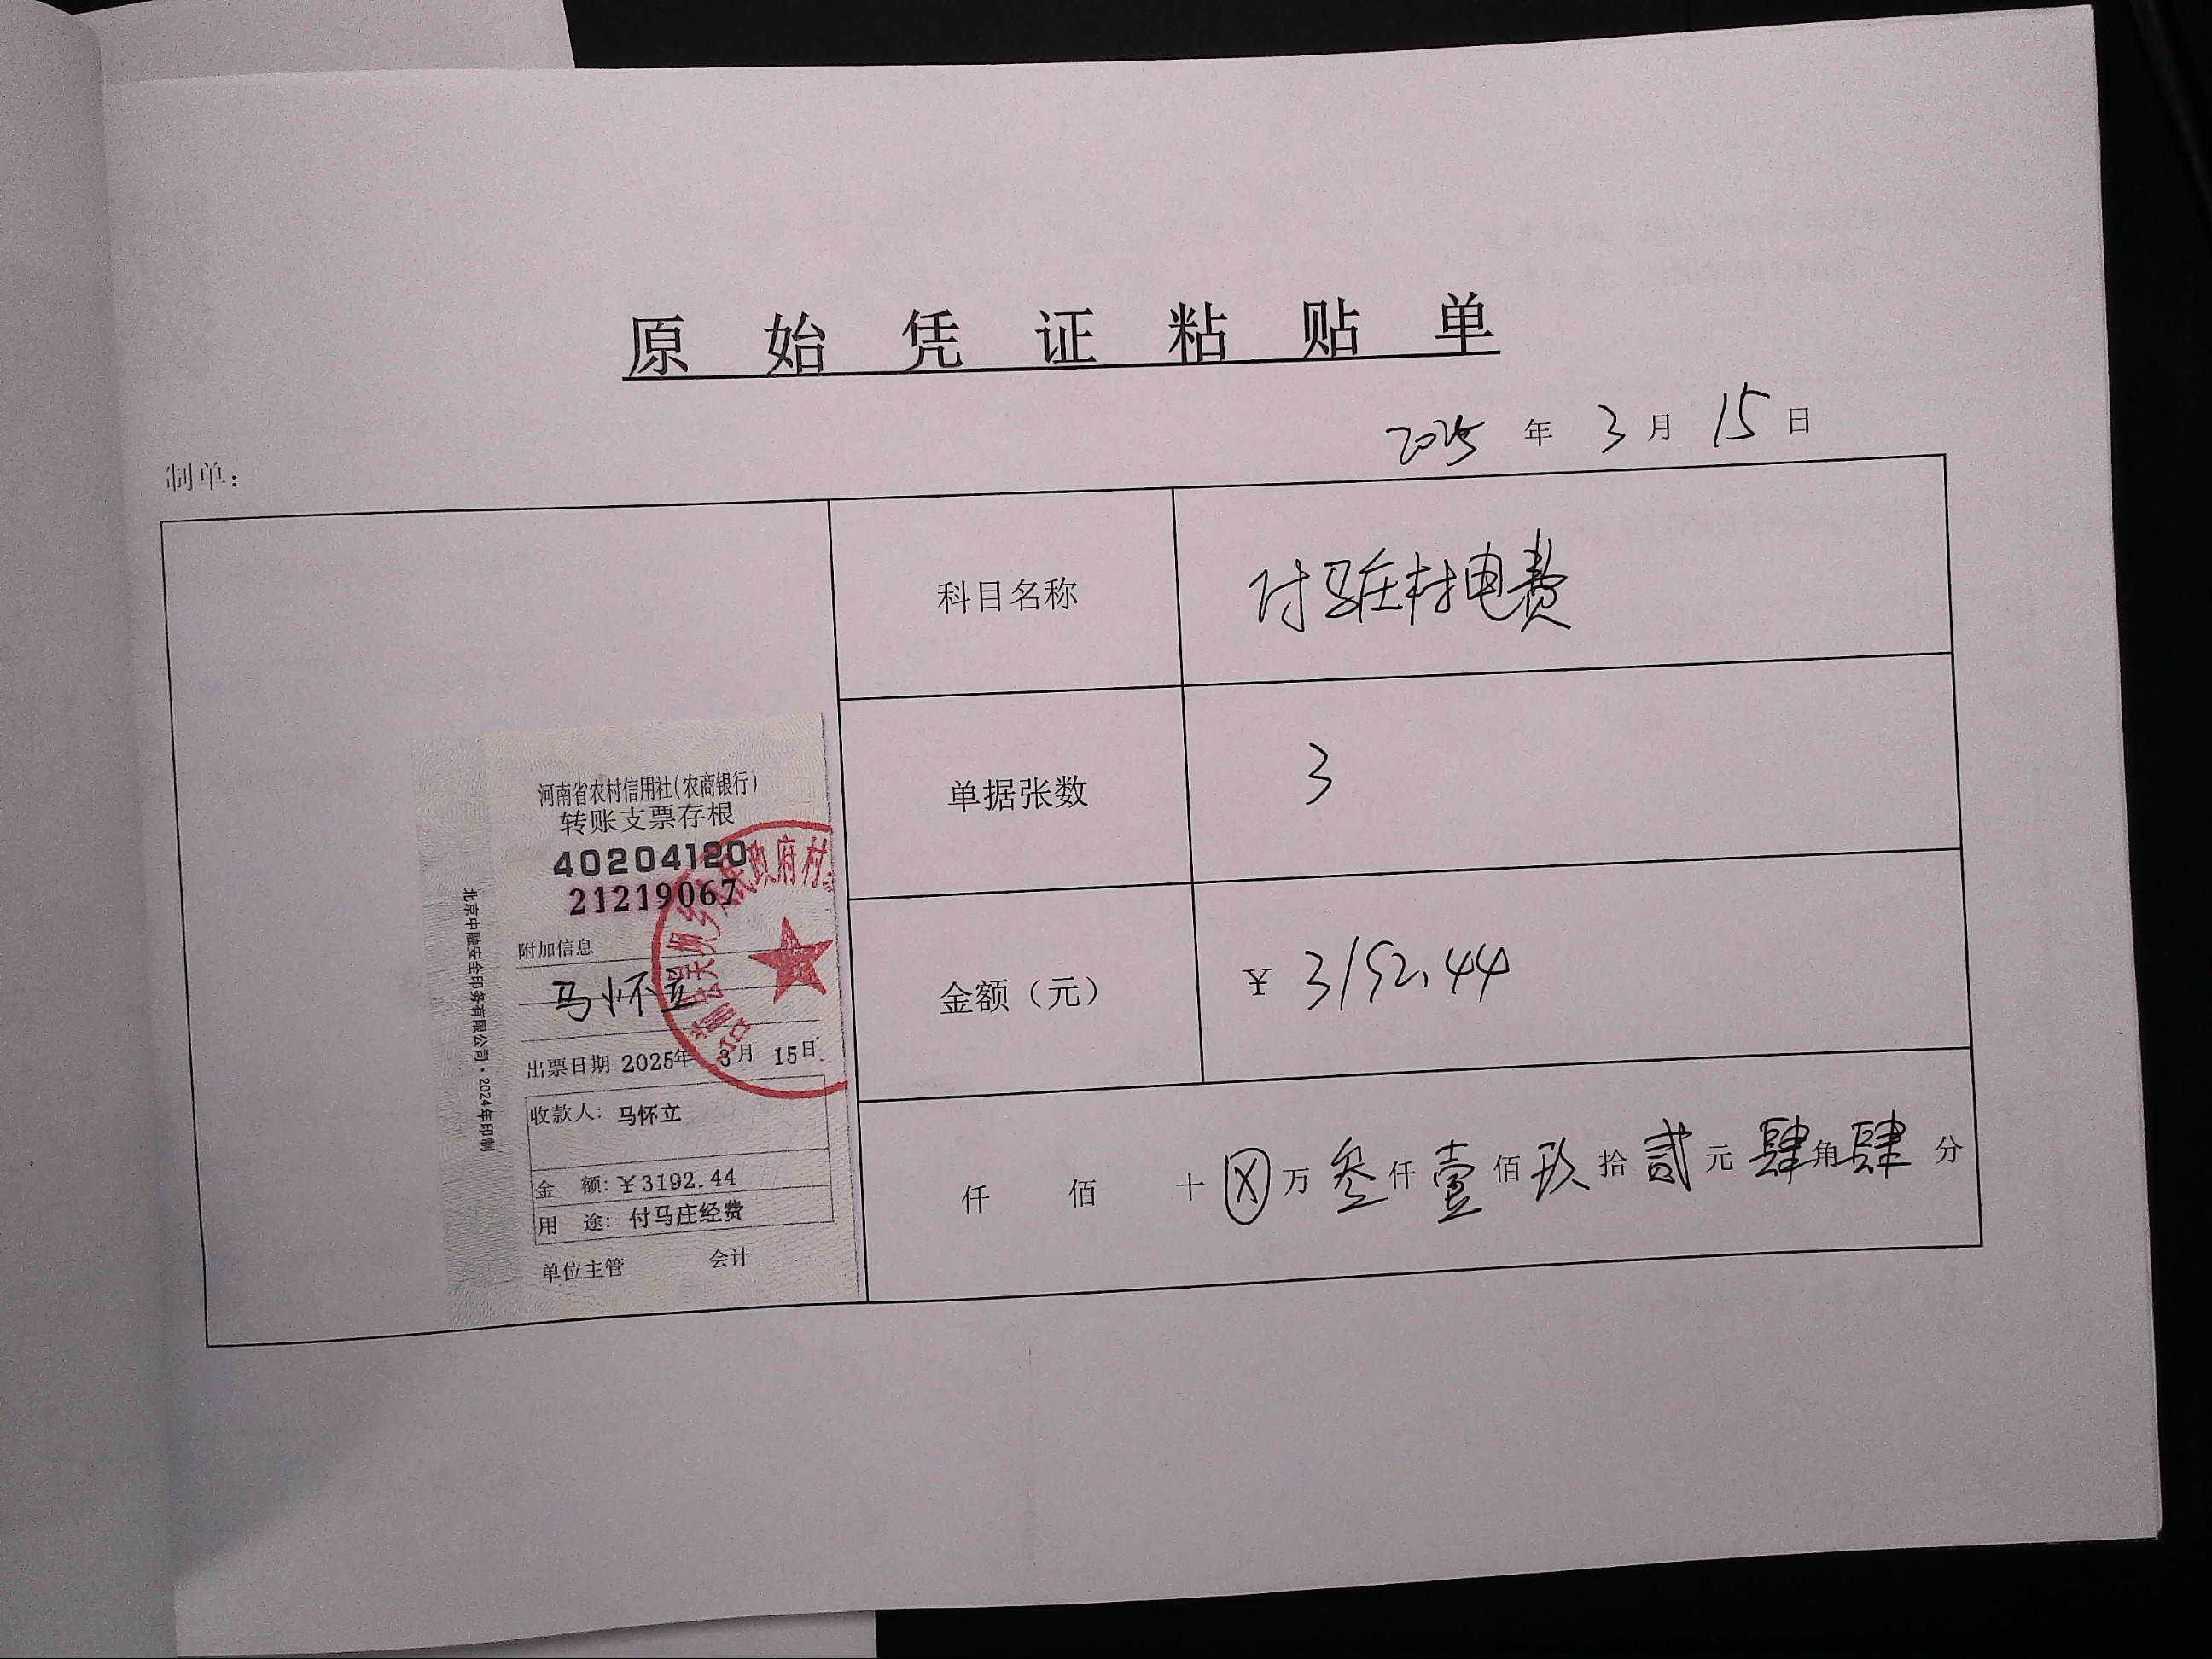 原始凭证粘贴单
2025年3月15日
制单:
科目名称 付驻村电费
单据张数 3
金额（元） ¥ 3192.44
仟 佰 十 ⊗ 万 叁 仟 壹 佰 玖 拾 贰 元 肆 角 肆 分
河南省农村信用社(农商银行)
转账支票存根
40204120
21219067
附加信息
马怀立
出票日期 2025年 3月 15日
收款人: 马怀立
金 额: ¥3192.44
用 途: 付马庄经费
单位主管 会计
北京中融安全印务有限公司·2024年印制
政府村